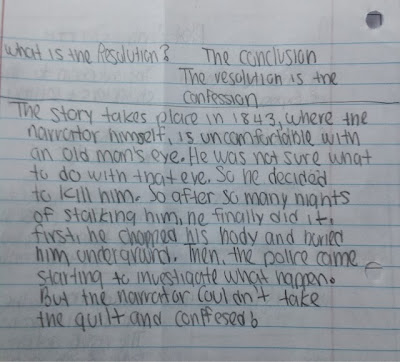 What is the Resolution? The conclusion
The resolution is the
confession
The story takes place in 1843, where the
narrator himself, is uncomfortable with
an old man's eye. He was not sure what
to do with that eye. So he decided
to kill him. So after so many nights
of stalking him, he finally did it.
first, he chopped his body and buried
him underground. Then, the police came
starting to investigate what happen.
But the narrator couldn't take
the guilt and conffesed.